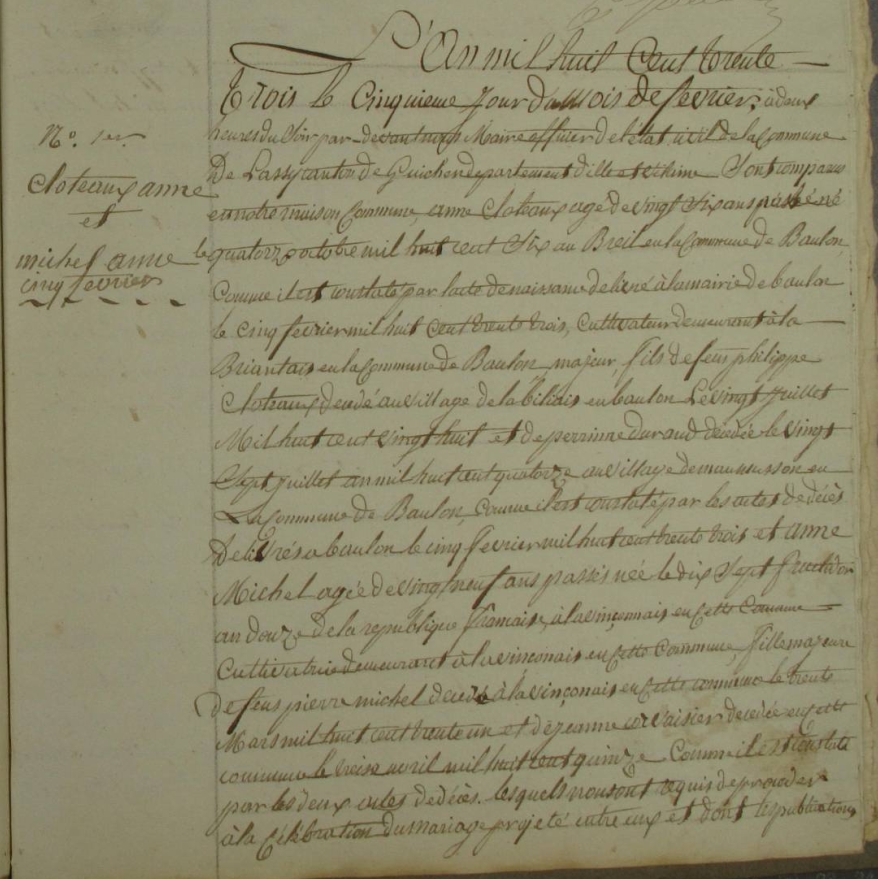 L'An mil huit Cent trente
trois le Cinquieme Jour du Mois de fevrier, à deux
heures du Soir par-devant nous Maire officier de l'état civil de la Commune
De Lassy canton de Guichen departement d'ille et vilaine Sont comparus
en notre maison Commune, anne Cloteaux agé de vingt Six ans passés né
le quatorze octobre mil huit cent Six au Breil en la Commune de Baulon,
Comme il est constaté par lacte de naissance delivré à la mairie de baulon
le cinq fevrier mil huit cent trente trois, Cultivateur demeurant à la
Briantais en la Commune de Baulon, majeur, fils de feus philippe
Cloteaux decedé au village de la biliais en baulon Le vingt juillet
Mil huit cent vingt huit et de perrinne durand decedée le vingt
Sept juillet an mil huit cent quatorze au village de maumusson en
La Commune de Baulon, Comme il est constaté par les actes de décès
delivrés a baulon le cinq fevrier mil huit cent trente trois et anne
Michel agée de vingt neuf ans passés née le dix Sept fructidor
an douze de la republique francaise, à la vinçonnais en Cette Commune
Cultivatrice demeurant à la vinçonais en Cette Commune, fille majeure
de feus pierre michel decedé à la vinçonais en Cette commune le trente
Mars mil huit cent trente un et de jeanne corvaisier decedée en cette
commune le treize avril mil huit cent quinze Comme il est constaté
par les deux actes de décès. lesquels nous ont requis de proceder
à la Célébration du mariage projeté entre eux et dont les publications
N°. 1er.
Cloteaux anne
et
michel anne
cinq fevrier